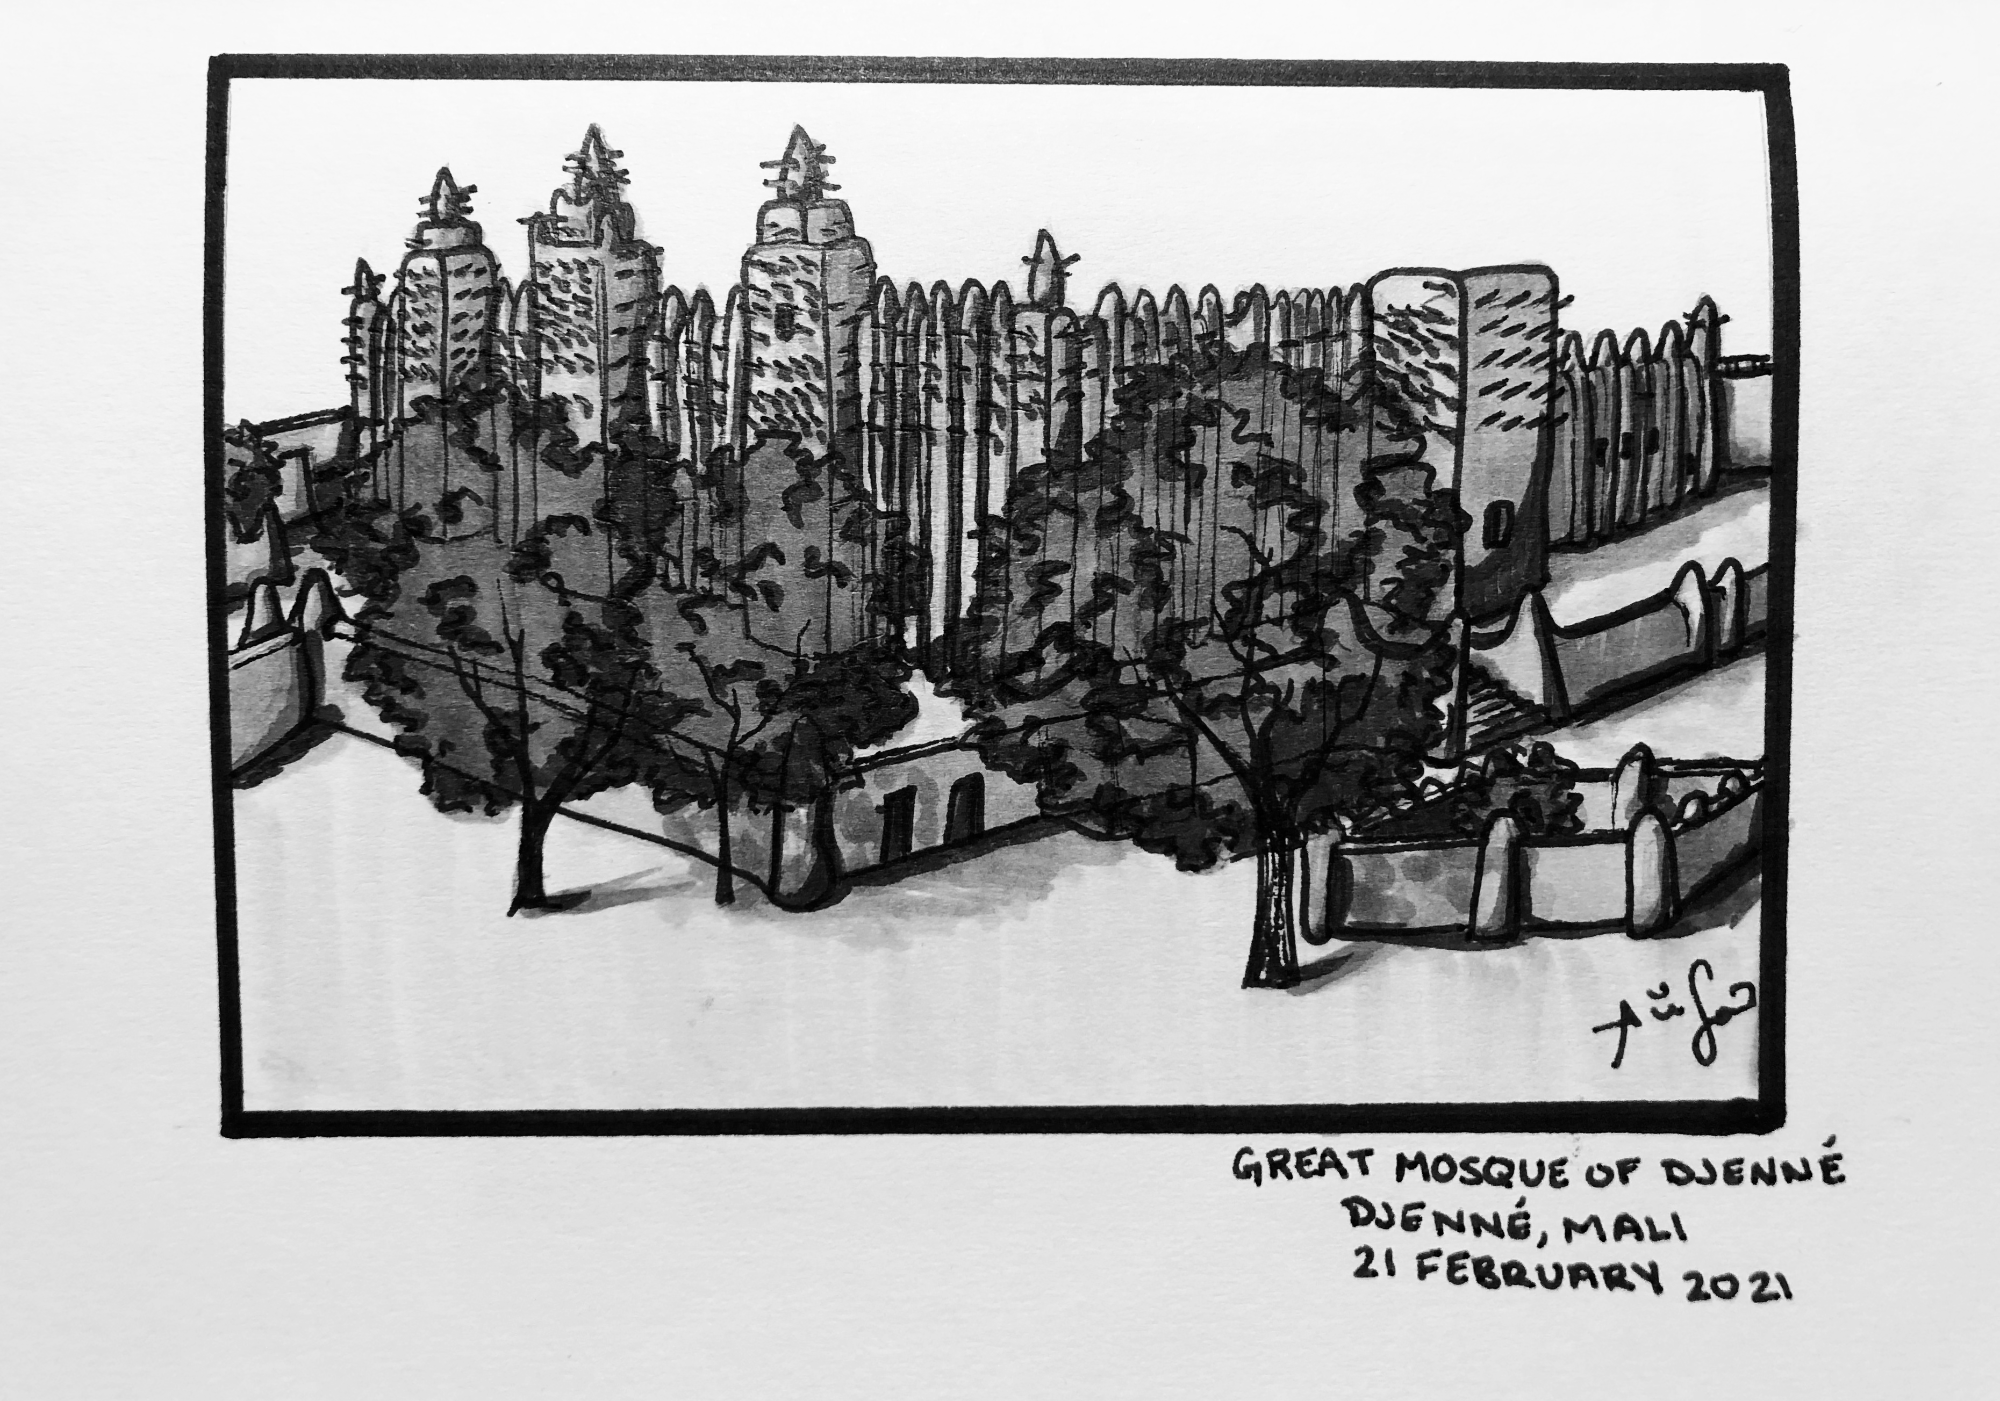 GREAT MOSQUE OF DJENNÉ
DJENNÉ, MALI
21 FEBRUARY 2021